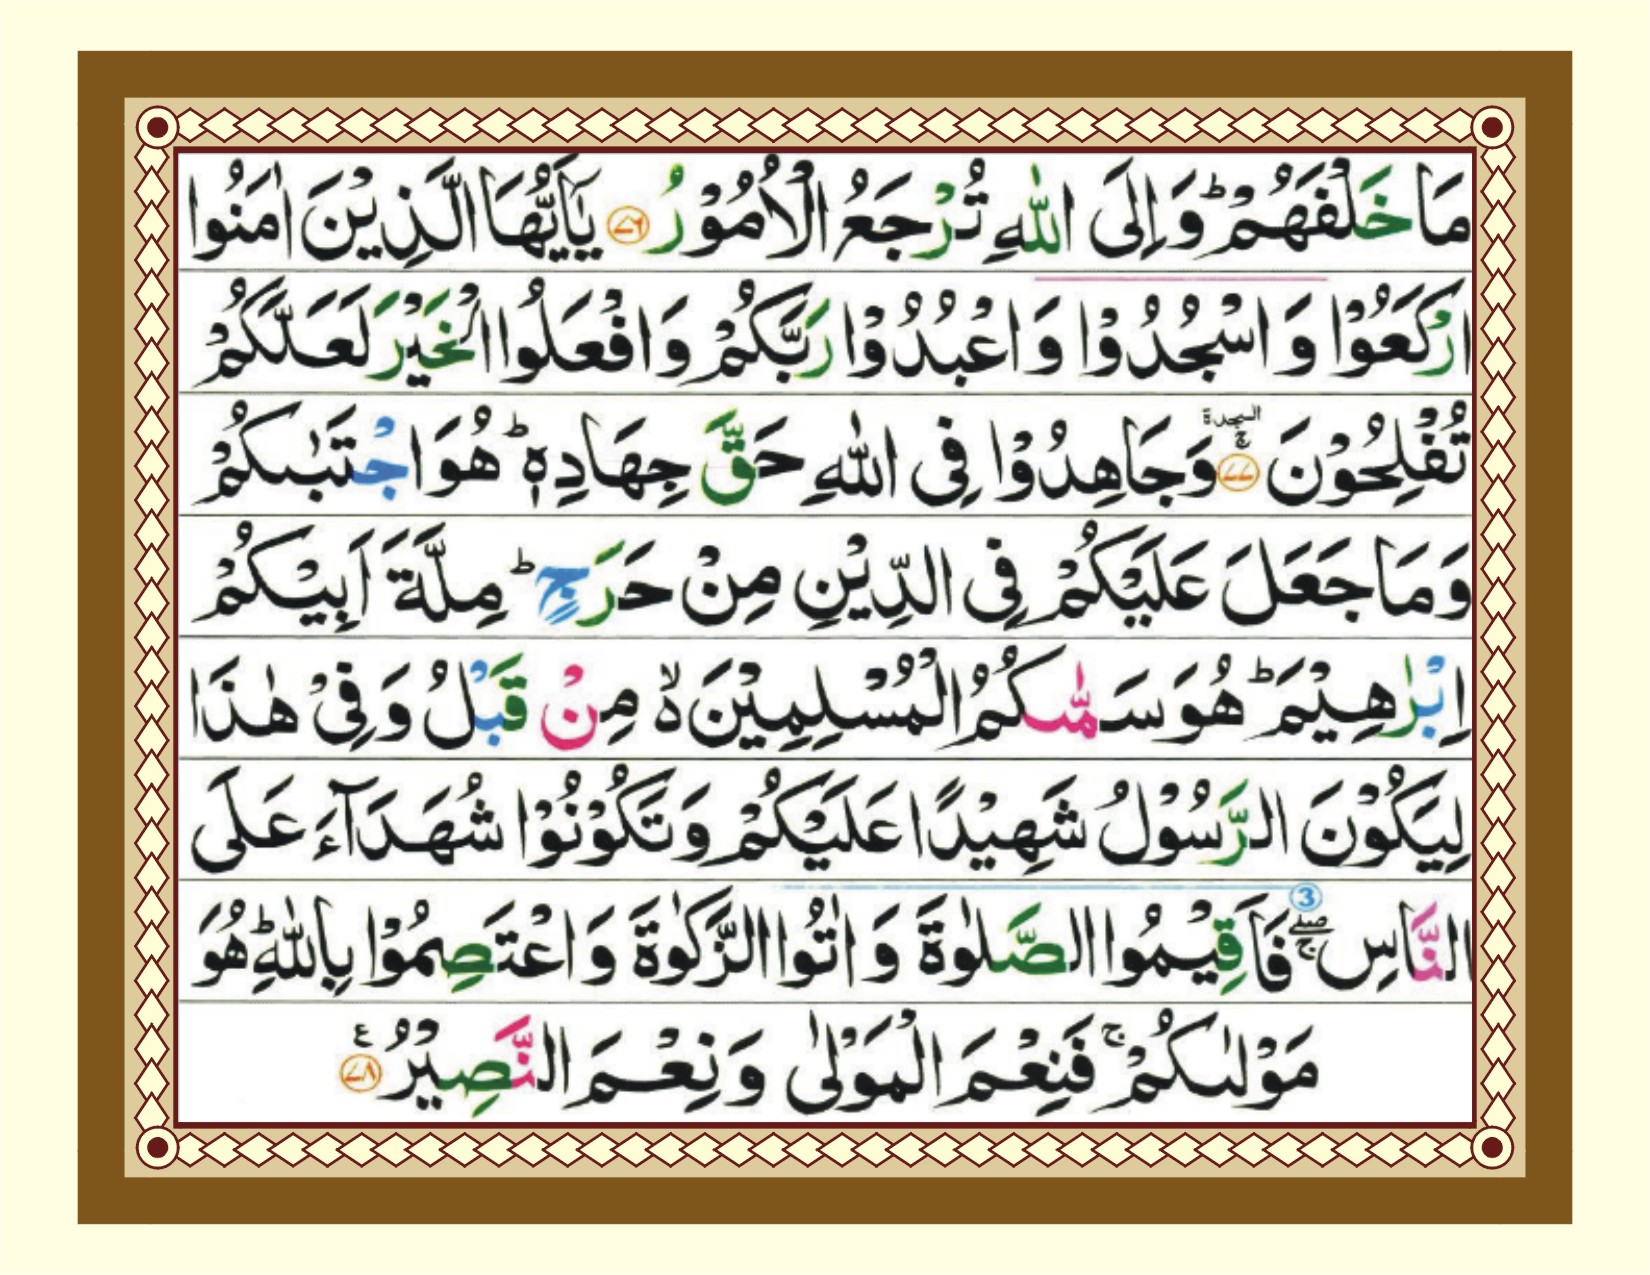 مَا خَلْفَهُمْ ؕ وَاِلَى اللّٰهِ تُرْجَعُ الْاُمُوْرُ ﴿۷۶﴾ يٰۤاَيُّهَا الَّذِيْنَ اٰمَنُوا
ارْكَعُوْا وَ اسْجُدُوْا وَ اعْبُدُوْا رَبَّكُمْ وَ افْعَلُوا الْخَيْرَ لَعَلَّكُمْ
تُفْلِحُوْنَ ۚ السجدة ﴿۷۷﴾ وَجَاهِدُوْا فِى اللّٰهِ حَقَّ جِهَادِهٖ ؕ هُوَ اجْتَبٰىكُمْ
وَمَا جَعَلَ عَلَيْكُمْ فِى الدِّيْنِ مِنْ حَرَجٍ ؕ مِلَّةَ اَبِيْكُمْ
اِبْرٰهِيْمَ ؕ هُوَ سَمّٰىكُمُ الْمُسْلِمِيْنَ ۙ مِنْ قَبْلُ وَفِىْ هٰذَا
لِيَكُوْنَ الرَّسُوْلُ شَهِيْدًا عَلَيْكُمْ وَتَكُوْنُوْا شُهَدَآءَ عَلَى
النَّاسِ ۖۚ 3 فَاَقِيْمُوا الصَّلٰوةَ وَ اٰتُوا الزَّكٰوةَ وَ اعْتَصِمُوْا بِاللّٰهِ ؕ هُوَ
مَوْلٰىكُمْ ۚ فَنِعْمَ الْمَوْلٰى وَ نِعْمَ النَّصِيْرُ ع ﴿۷۸﴾